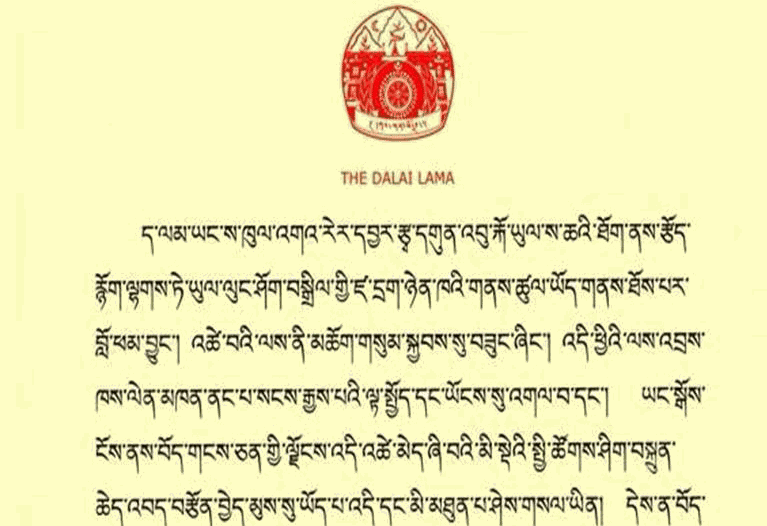 THE DALAI LAMA
ད་ལམ་ཡང་ས་ཁུལ་འགའ་རེར་དབྱར་རྩྭ་དགུན་འབུ་རྐོ་ཡུལ་ས་ཆའི་ཐོག་ནས་རྩོད་
རྙོག་ལྷགས་ཏེ་ཡུལ་ལུང་ཤོག་བསྒྲིལ་གྱི་ཛ་དྲག་ཉེན་ཁའི་གནས་ཚུལ་ཡོད་གནས་ཐོས་པར་
བློ་ཕམ་བྱུང་། འཚེ་བའི་ལས་ནི་མཆོག་གསུམ་སྐྱབས་སུ་བཟུང་ཞིང་། འདི་ཕྱིའི་ལས་འབྲས་
ཁས་ལེན་མཁན་ནང་པ་སངས་རྒྱས་པའི་ལྟ་སྤྱོད་དང་ཡོངས་སུ་འགལ་བ་དང་། ཡང་སྒོས་
ངོས་ནས་བོད་གངས་ཅན་གྱི་ལྗོངས་འདི་འཚེ་མེད་ཞི་བའི་མི་སྡེའི་སྤྱི་ཚོགས་ཤིག་བསྐྲུན་
ཆེད་འབད་བརྩོན་བྱེད་མུས་སུ་ཡོད་པ་འདི་དང་མི་མཐུན་པ་ཤེས་གསལ་ཡིན། དེས་ན་བོད་